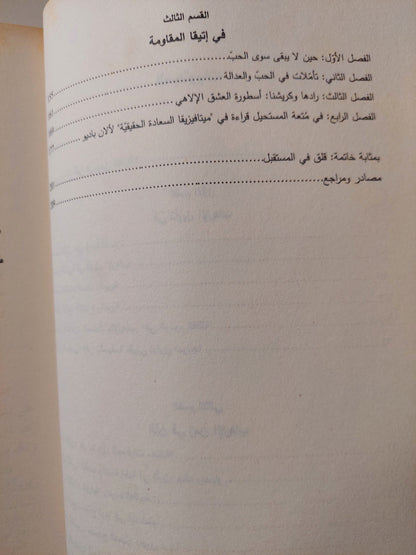 القسم الثالث
في إتيقا المقاومة
الفصل الأوّل: حين لا يبقى سوى الحبّ
الفصل الثاني: تأمّلات في الحبّ والعدالة
الفصل الثالث: رادها وكريشنا: أسطورة العشق الإلاهي
الفصل الرابع: في مُتعة المستحيل قراءة في "ميتافيزيقا السعادة الحقيقيّة" لألان باديو
بمثابة خاتمة: قلق في المستقبل
مصادر ومراجع